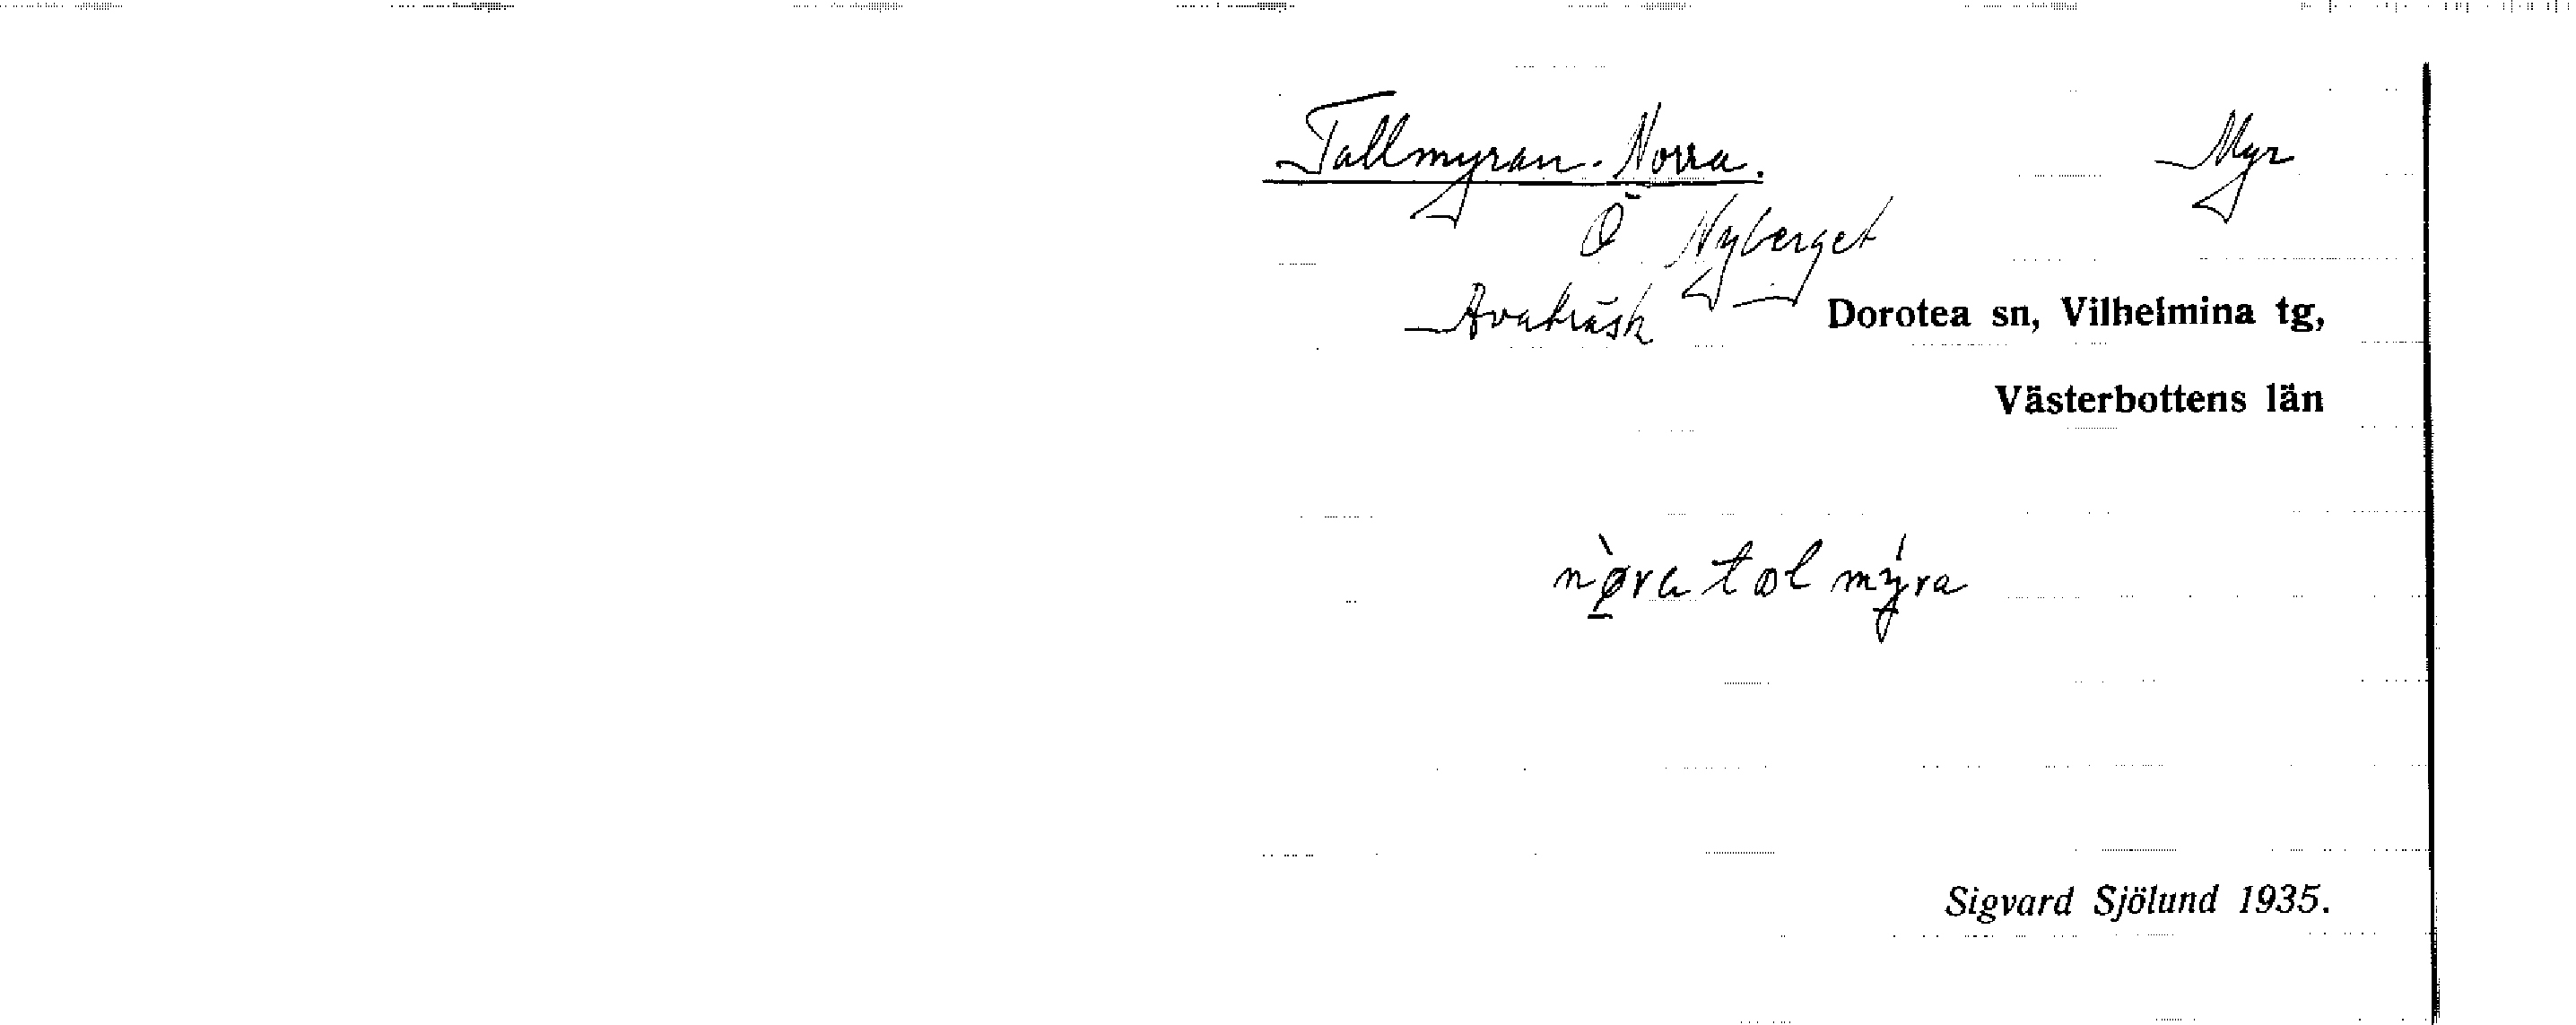 Tallmyran. Norra. Myr
Ö Nyberget
Avaträsk Dorotea sn, Vilhelmina tg,
Västerbottens län
nø̀ra tol mýra
Sigvard Sjölund 1935.